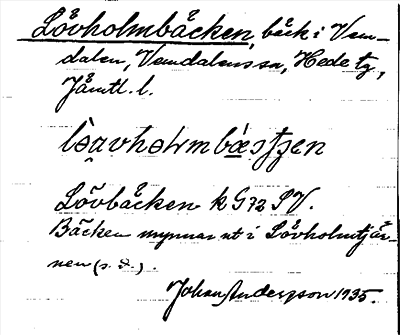 Lövholmbäcken, bäck i Vem-
dalen, Vemdalens sn, Hede tg,
Jämtl. l.
Lövbäcken k G 72 SV.
Bäcken mynnar ut i Lövholmtjär-
nen (s. d.).
Johan Anderson 1935.